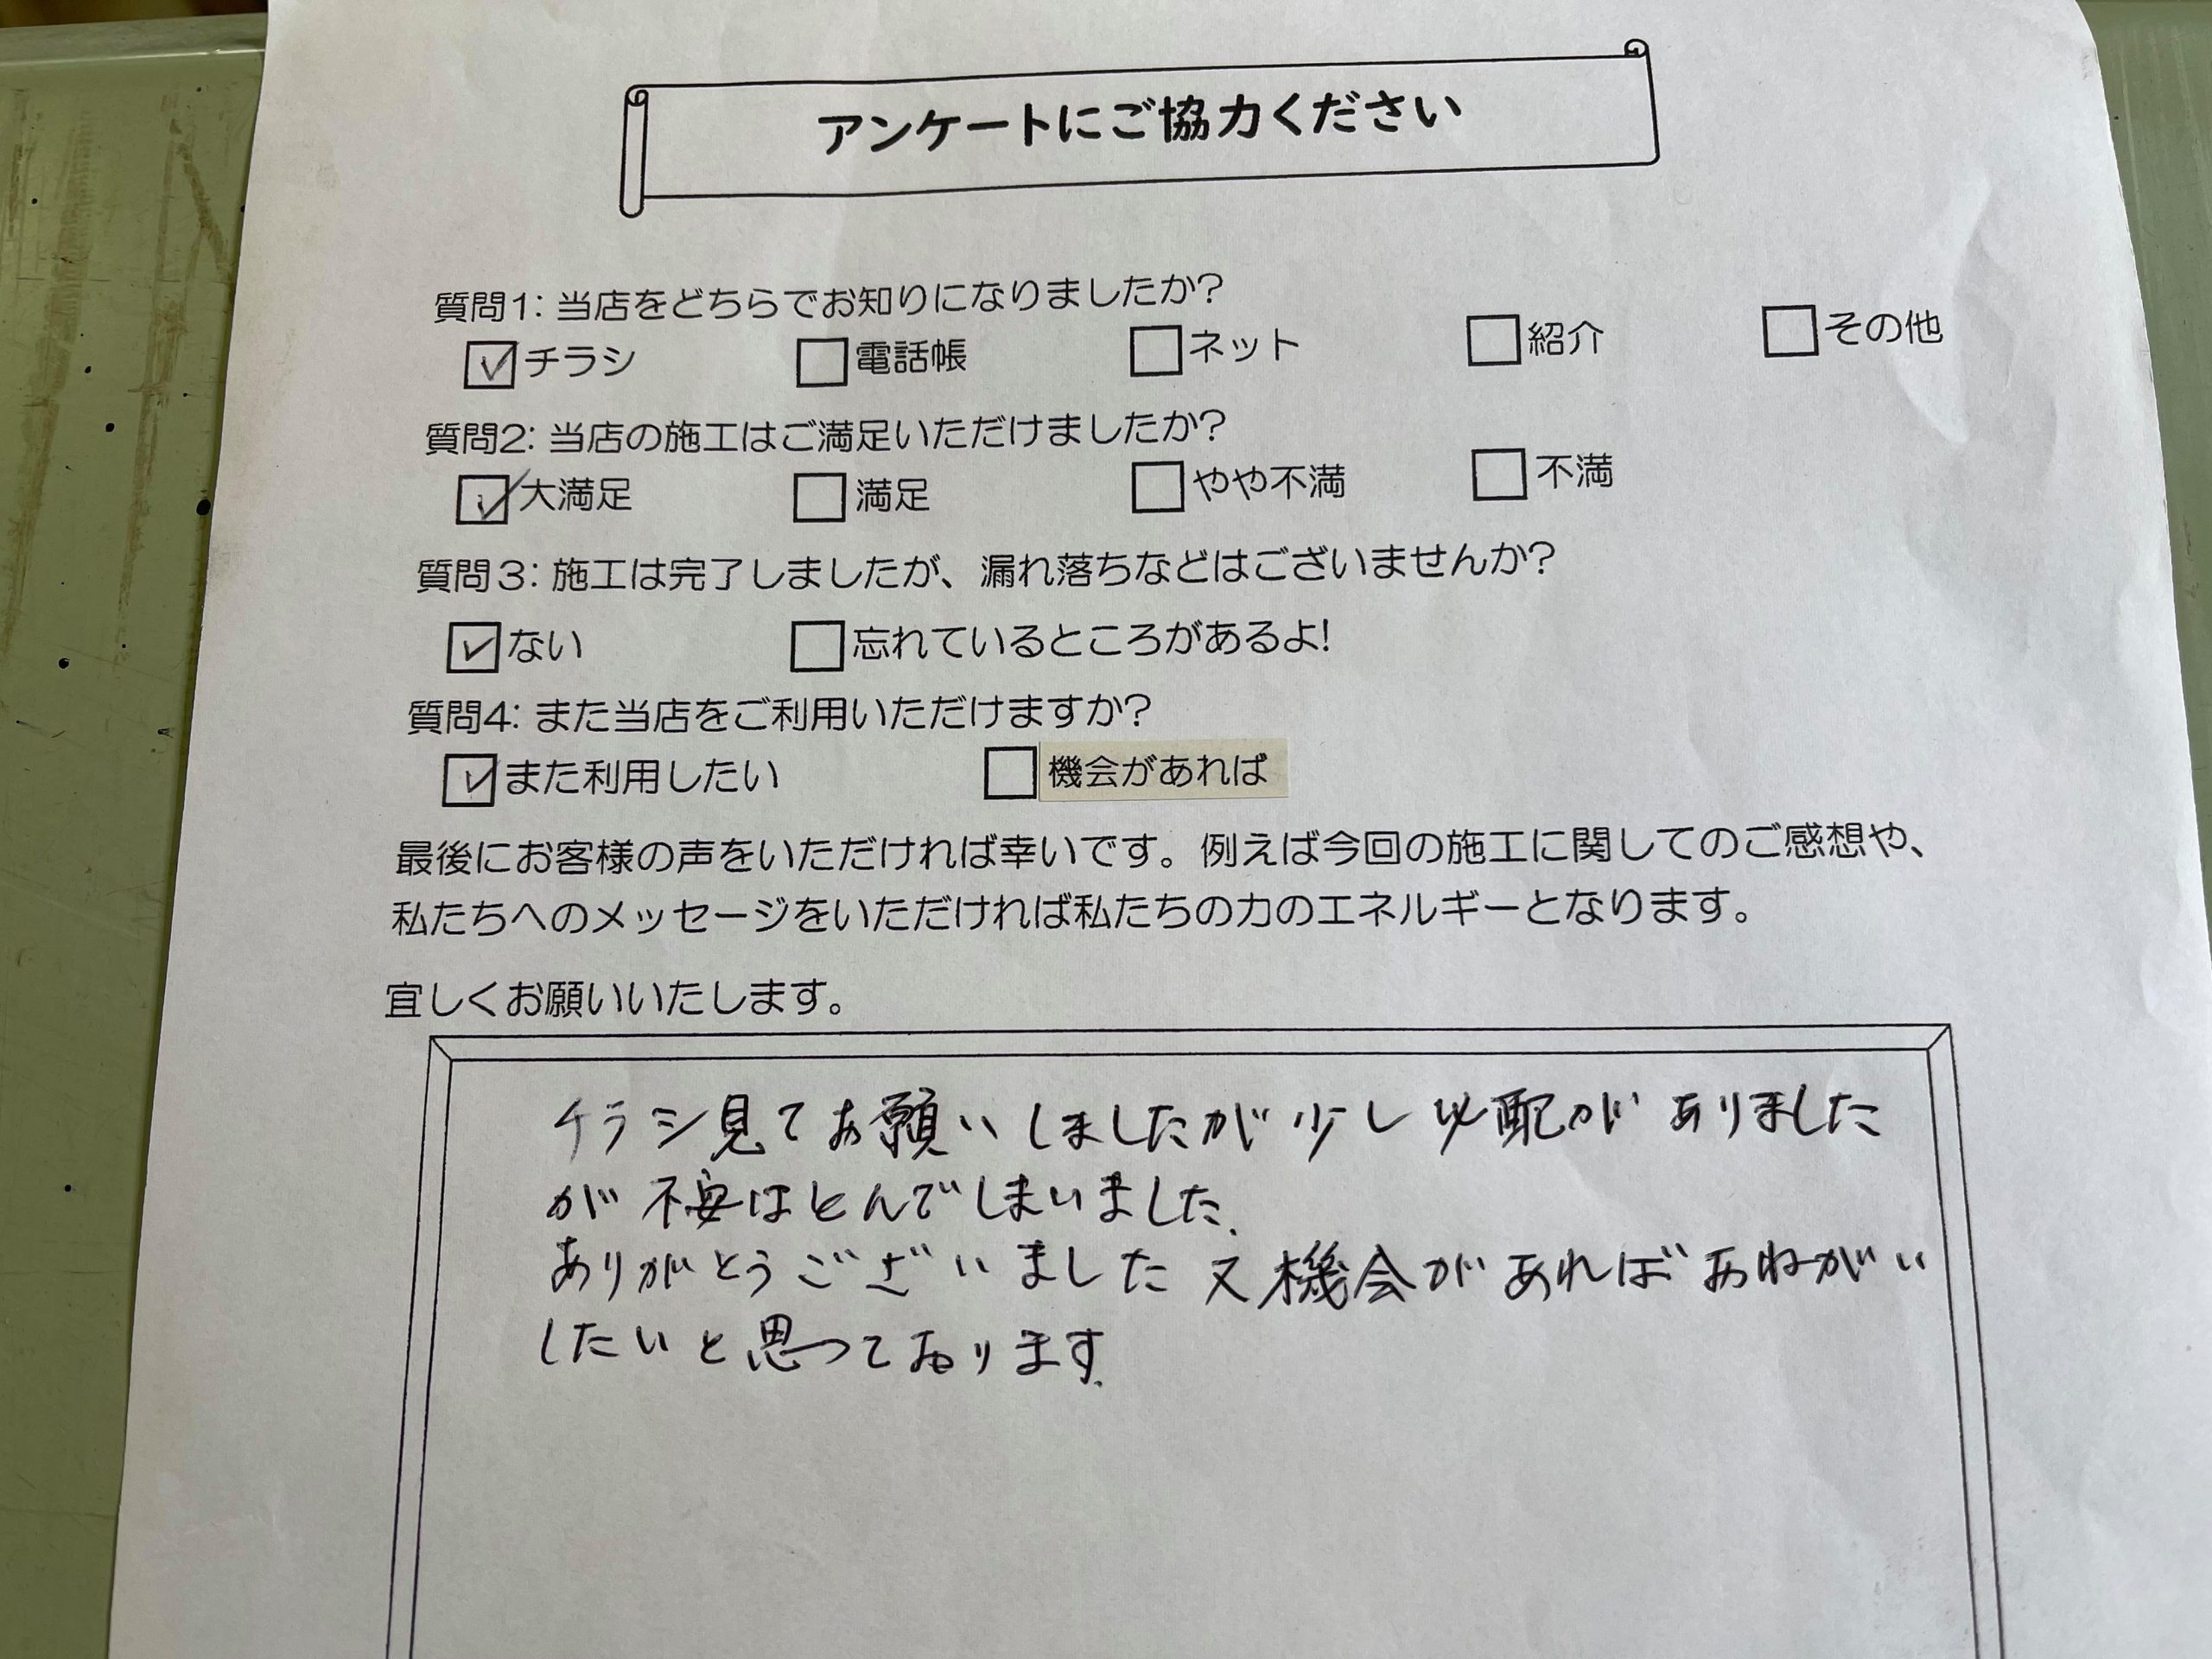 アンケートにご協力ください
質問1: 当店をどちらでお知りになりましたか?
☑チラシ □電話帳 □ネット □紹介 □その他
質問2: 当店の施工はご満足いただけましたか?
☑大満足 □満足 □やや不満 □不満
質問3: 施工は完了しましたが、漏れ落ちなどはございませんか?
☑ない □忘れているところがあるよ!
質問4: また当店をご利用いただけますか?
☑また利用したい □機会があれば
最後にお客様の声をいただければ幸いです。例えば今回の施工に関してのご感想や、
私たちへのメッセージをいただければ私たちの力のエネルギーとなります。
宜しくお願いいたします。
チラシ見てお願いしましたが少し心配がありました
が不安はとんでしまいました.
ありがとうございました又機会があればおねがい
したいと思っております.